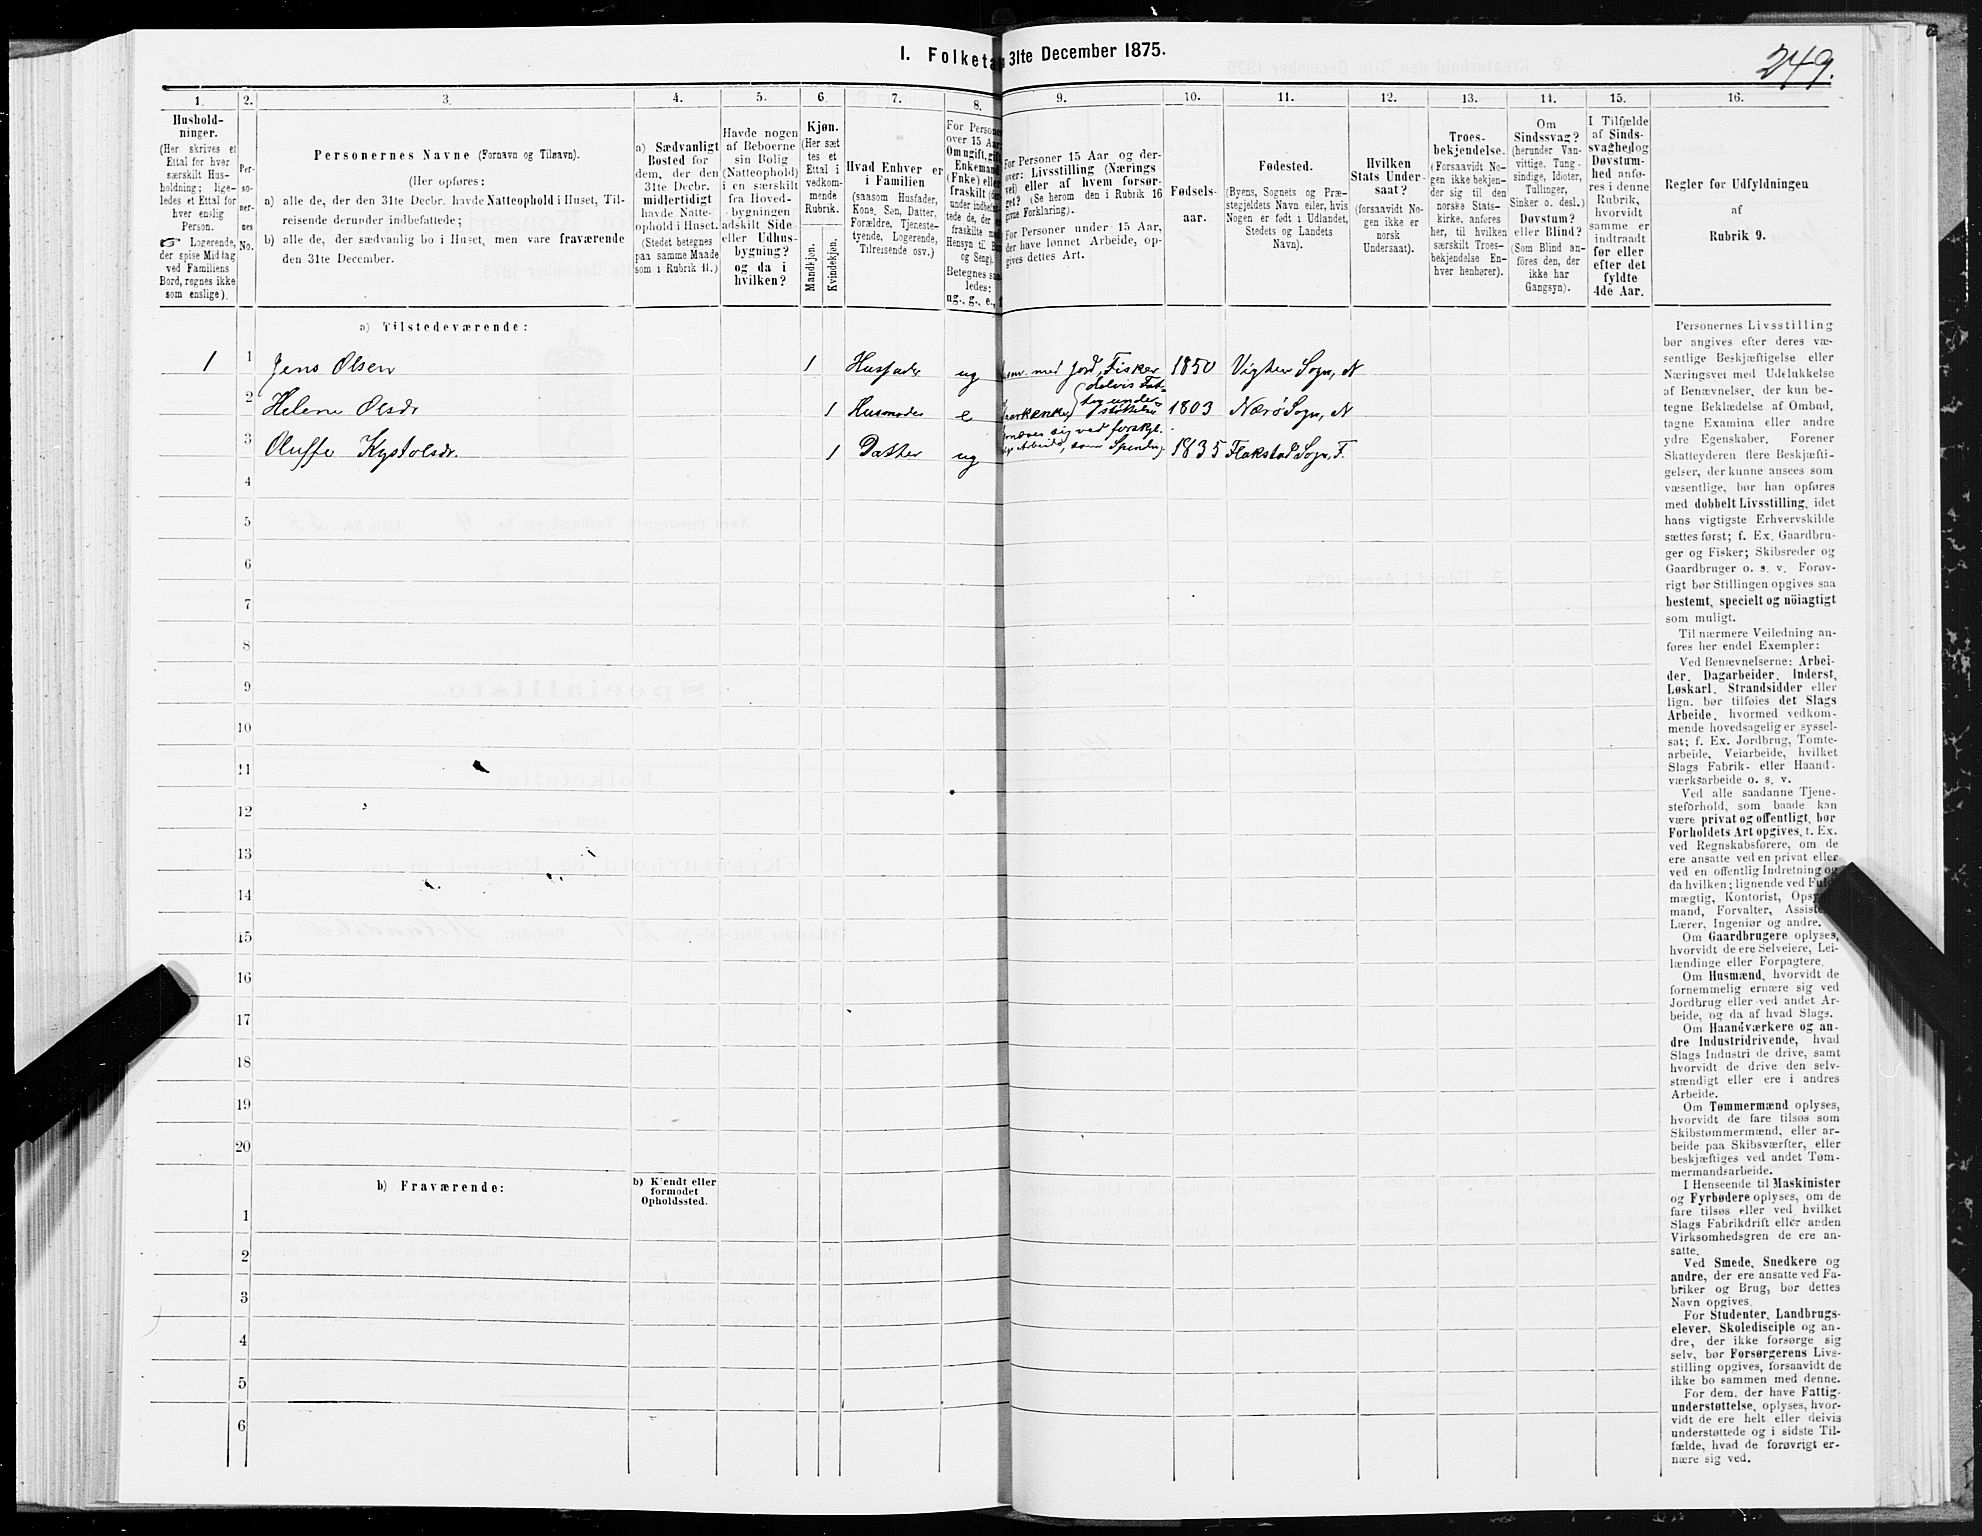 I. Folketæ
31te December 1875.
249.
1.
2.
3.
4.
5.
6.
7.
8.
9.
10.
11.
12.
13.
14.
15.
16.
Hushold-
ninger.
(Her skrives et
Ettal for hver
særskilt Hus-
holdning; lige-
ledes et Ettal for
hver enslig
Person.
☞ Logerende,
der spise Middag
ved Familiens
Bord, regnes ikke
som enslige).
Per-
so-
ner-
nes
No.
Personernes Navne (Fornavn og Tilnavn).
(Her opføres:
a) alle de, der den 31te Decbr. havde Natteophold i Huset, Til-
reisende derunder indbefattede;
b) alle de, der sædvanlig bo i Huset, men vare fraværende
den 31te December.
a) Sædvanligt
Bosted for
dem, der den
31te Decbr.
midlertidigt
havde Natte-
ophold i Huset.
(Stedet betegnes
paa samme Maade
som i Rubrik 11.)
Havde nogen
af Beboerne
sin Bolig
(Natteophold)
i en særskilt
fra Hoved-
bygningen
adskilt Side-
eller Udhus-
bygning?
og da i
hvilken?
Kjøn.
(Her sæt
tes et
Ettal i
vedkom-
mende
Rubrik.
Mandkjøn.
Kvindekjøn.
Hvad Enhver er
i Familien
(saasom Husfader,
Kone, Søn, Datter,
Forældre, Tjeneste-
tyende, Logerende,
Tilreisende osv.)
For Persone
over 15 Aar
Om ugift, gift
Enkemand
(Enke) eller
fraskilt (der
under indbefat
tede de, der er
fraskilte med
Hensyn til Bo
og Seng).
Betegnes saa
ledes:
ug., g., e.,
For Personer 15 Aar og der-
over: Livsstilling (Nærings
vei) eller af hvem forsør-
get? (Se herom den i Rubrik 16
givne Forklaring).
For Personer under 15 Aar,
der have lønnet Arbeide, op-
gives dettes Art.
Fødsels-
aar.
Fødested.
(Byens, Sognets og Præ-
stegjeldets Navn eller, hvis
Nogen er født i Udlandet,
Stedets og Landets
Navn).
Hvilken
Stats Under-
saat?
(forsaavidt No-
gen ikke er
norsk
Undersaat).
Troes-
bekjendelse.
(Forsaavidt No-
gen ikke bekjen-
der sig til den
norske Stats-
kirke, anføres
her, til hvilken
særskilt Troes-
bekjendelse En-
hver henhører).
Om
Sindssvag?
(herunder Van-
vittige, Tung-
sindige, Idioter,
Tullinger,
Sinker o. desl.)
Døvstum?
eller Blind?
(Som Blind an-
føres den, der
ikke har
Gangsyn).
I Tilfælde
af Sinds-
svaghed og
Døvstum-
hed anfø-
res i denne
Rubrik,
hvorvidt
samme er
indtraadt
før eller
efter det
fyldte
4de Aar.
Regler for Udfyldningen
af
Rubrik 9.
a) Tilstedeværende:
1 1 Jens Olsen 1 Husfader ug med Jord, Fisker 1850 Vigten Sogn, N
2 Helene Olsdr 1 Husmoder e 1803 Nærø Sogn, N
3 Oluffa Kystolsdr. 1 Datter ug 1835 Flakstad Sogn, F.
4
5
6
7
8
9
10
11
12
13
14
15
16
17
18
19
20
b) Fraværende:
b) Kjendt eller
formodet
Opholdssted.
1
2
3
4
5
6
Personernes Livsstilling
bør angives efter deres væ-
sentlige Beskjæftigelse eller
Næringsvei med Udelukkelse
af Benævnelser, der kun be-
tegne Beklædelse af Ombud,
tagne Examina eller andre
ydre Egenskaber. Forener
Skatteyderen flere Beskjæfti-
gelser, der kunne ansees som
væsentlige, bør han opføres
med dobbelt Livsstilling, idet
hans vigtigste Erhvervskilde
sættes først; f. Ex. Gaardbru-
ger og Fisker; Skibsreder og
Gaardbruger o. s. v. Forøv-
rigt bør Stillingen opgives saa
bestemt, specielt og nöiagtigt
som muligt.
Til nærmere Veiledning an-
føres her endel Exempler:
Ved Benævnelserne: Arbei-
der, Dagarbeider, Inderst,
Løskarl, Strandsidder eller
lign. bør tilføies det Slags
Arbeide, hvormed vedkom-
mende hovedsagelig er syssel-
sat; f. Ex. Jordbrug, Tomte-
arbeide, Veiarbeide, hvilket
Slags Fabrik- eller Haand-
værksarbeide o. s. v.
Ved alle saadanne Tjene-
steforhold, som baade kan
være privat og offentligt, bør
Forholdets Art opgives, t. Ex.
ved Regnskabsførere, om de
ere ansatte ved en privat eller
ved en offentlig Indretning og
da hvilken; lignende ved Fuld-
mægtig, Kontorist, Opsyns-
mand, Forvalter, Assistent,
Lærer, Ingeniør og andre.
Om Gaardbrugere oplyses,
hvorvidt de ere Selveiere, Lei-
lændinge eller Forpagtere.
Om Husmænd, hvorvidt de
fornemmelig ernære sig ved
Jordbrug eller ved andet Ar-
beide, og da af hvad Slags.
Om Haandværkere og an-
dre Industridrivende, hvad
Slags Industri de drive, samt
hvorvidt de drive den selv-
stændigt eller ere i andres
Arbeide.
Om Tømmermænd oplyses,
hvorvidt de fare tilsøs som
Skibstømmermænd, eller ar-
beide paa Skibsværfter, eller
beskjæftiges ved andet Tøm-
mermandsarbeide.
I Henseende til Maskinister
og Fyrbødere oplyses, om de
fare tilsøs eller ved hvilket
Slags Fabrikdrift eller anden
Virksomhedsgren de ere an-
satte.
Ved Smede, Snedkere og
andre, der ere ansatte ved Fa-
briker og Brug, bør dettes
Navn opgives.
For Studenter, Landbrugs-
elever, Skoledisciple og an-
dre, der ikke forsørge sig
selv, bør Forsørgerens Livs-
stilling opgives, forsaavidt de
ikke bo sammen med denne.
For dem, der have Fattig-
understøttelse, oplyses, hvor-
vidt de ere helt eller delvis
understøttede og i sidste Til-
fælde, hvad de forøvrigt er-
nære sig ved.